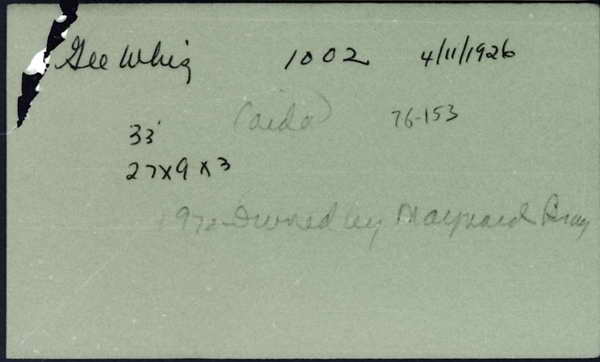 Gee Whiz 1002 4/11/1926
(aida) 76-153
33'
27x9x3
1972 Owned by Maynard Bray